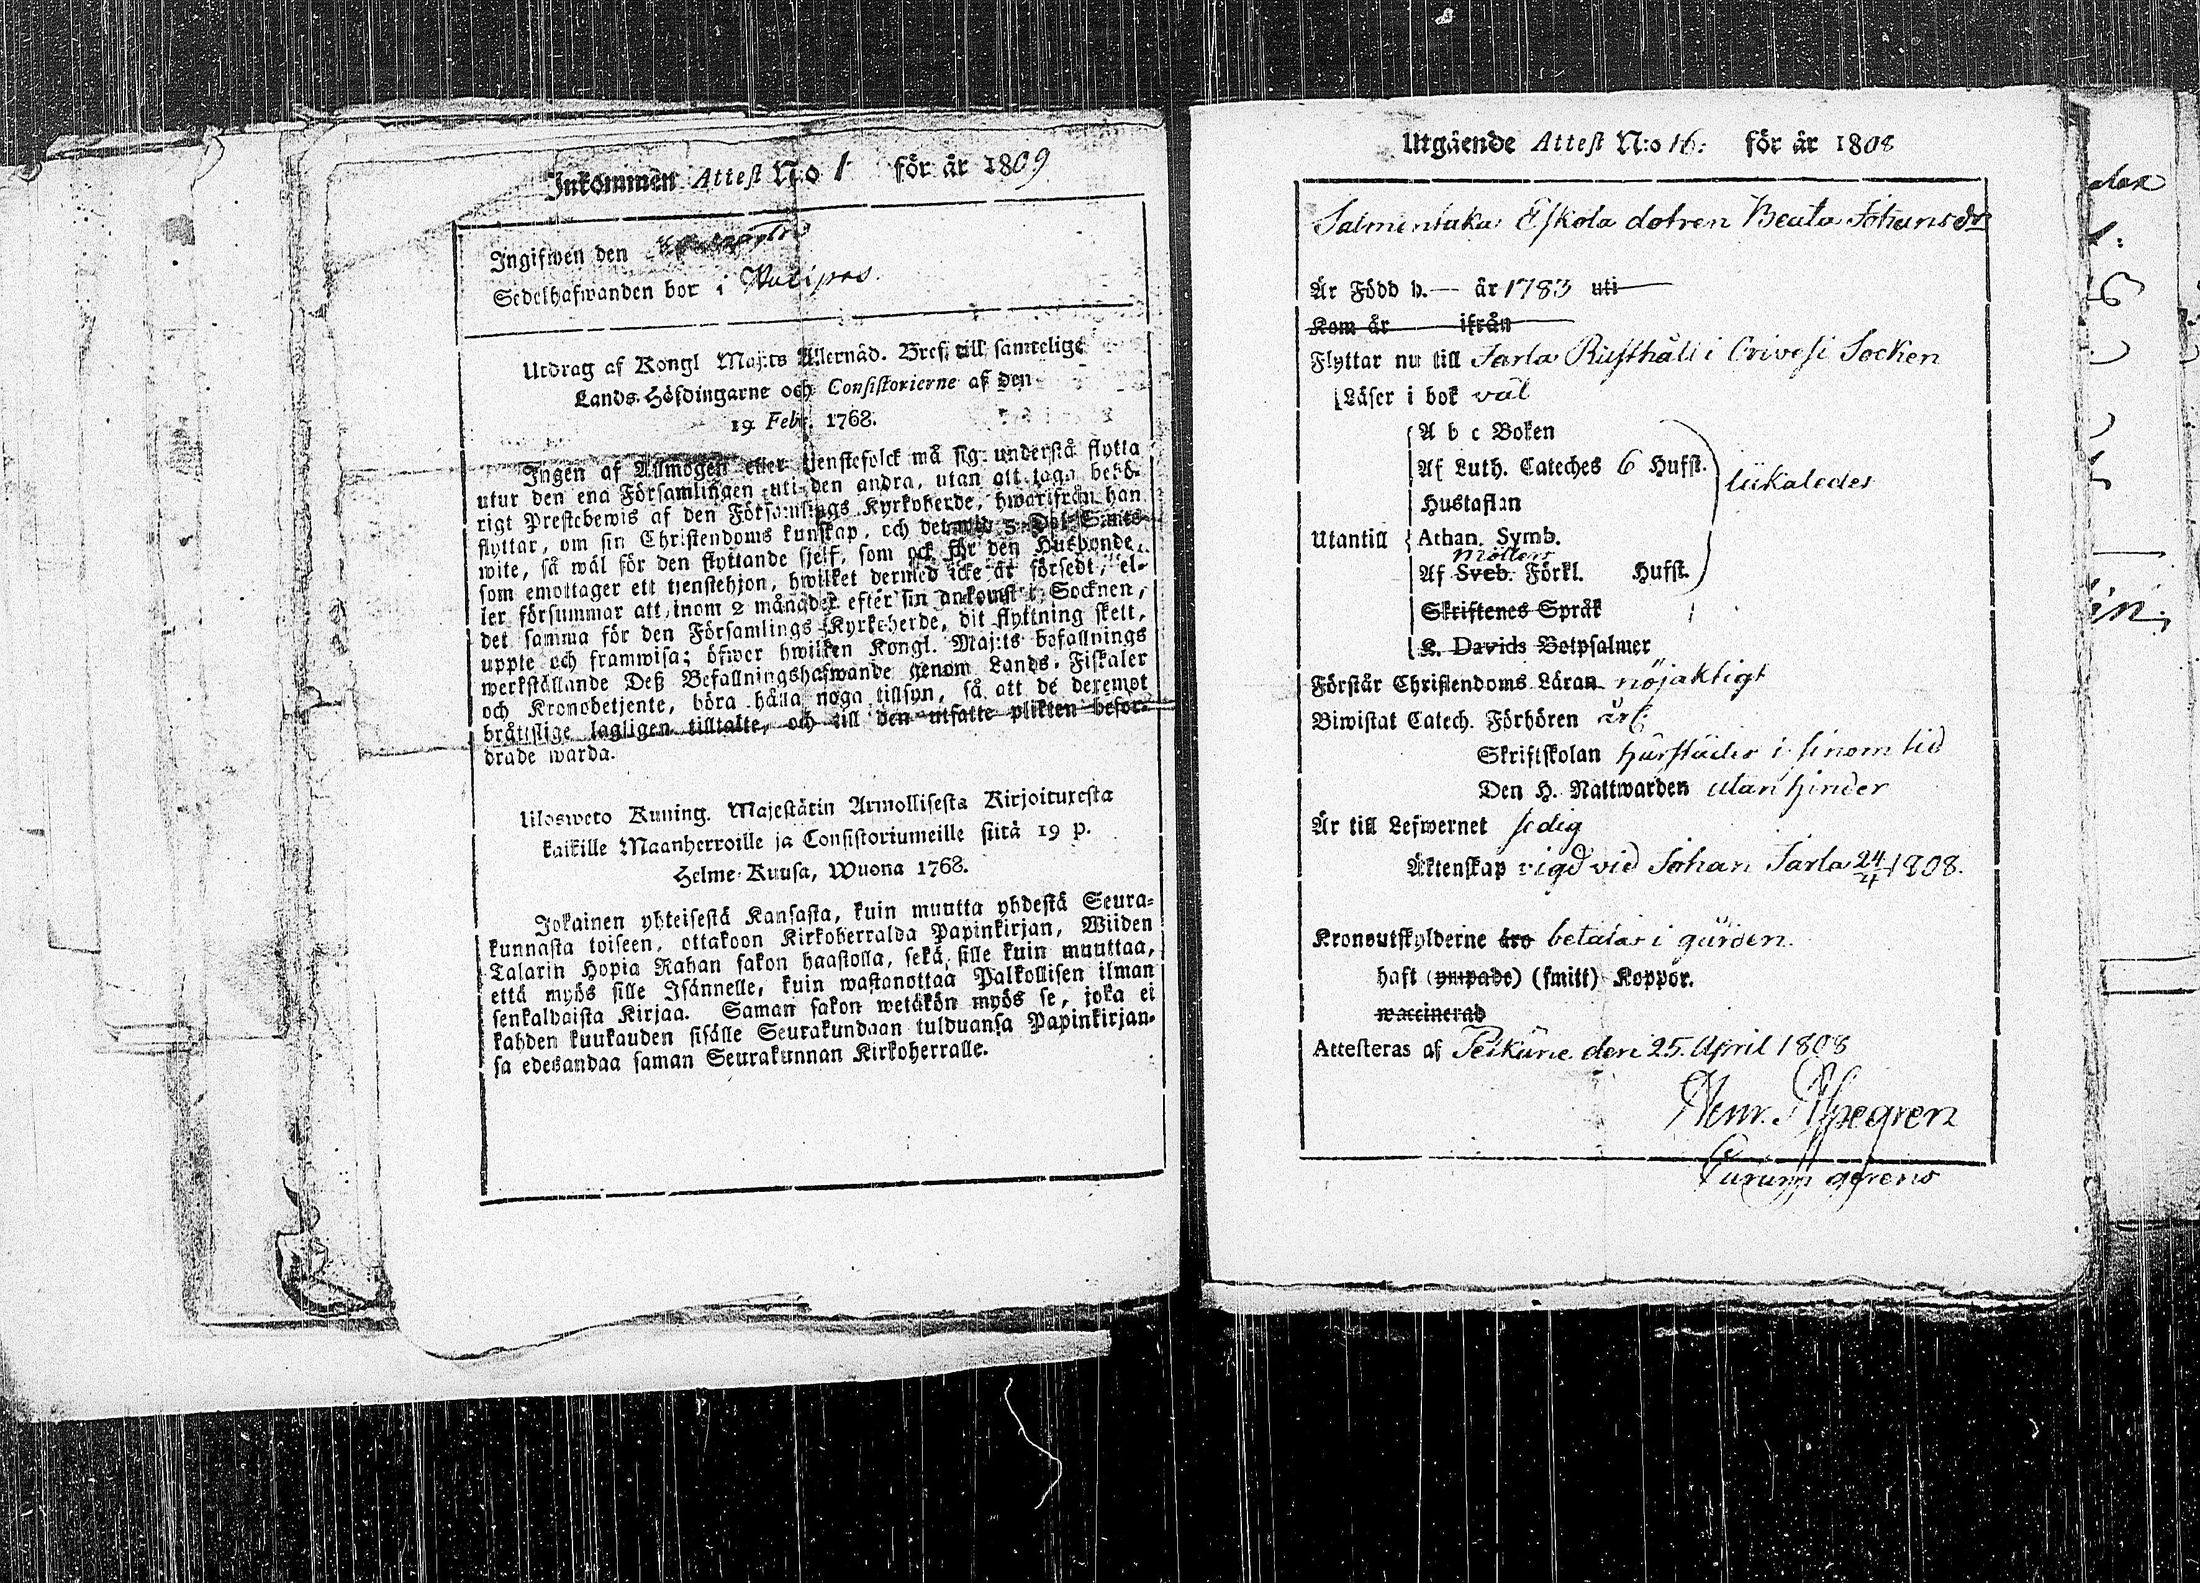 Inkommen Attest N:o 1 för år 1809
Ingifwen den
Sedelhafwanden bor i
Utdrag af Kongl Maj:ts Allernåd. Bref till samtelige
Lands-Höfdingarne och Consistorierne af den
19 Febr. 1768.
Ingen af Allmogen eller tjenstefolck må sig understå flytta
utur den ena Församlingen uti den andra, utan att taga behö-
rigt Prestebewis af den Församlings Kyrkoherde, hwarifrån han
flyttar, om sin Christendoms kunskap, och det wid 5 Dal. S:mts
wite, så wäl för den flyttande sjelf, som ock för den Husbonde,
som emottager ett tjenstehjon, hwilket dermed icke är försedt, el-
ler försummar att inom 2 månader efter sin ankomst i Socknen,
det samma för den Församlings Kyrkoherde, dit flyttning skett,
uppte och framwisa; öfwer hwilken Kongl. Maj:ts befallnings
werkställande Deß Befallningshafwande genom Lands-Fiskaler
och Kronobetjente, böra hålla noga tillsyn, så att de deremot
bråttslige lagligen tilltalte, och till den utsatte plikten befor-
drade warda.
Ulosweto Kuning. Majestätin Armollisesta Kirjoituxesta
kaikille Maanherroille ja Consistoriumeille siitä 19 p.
Helme-Kuusa, Wuona 1768.
Jokainen yhteisestä Kansasta, kuin muutta yhdestä Seura-
kunnasta toiseen, ottakoon Kirkoherralda Papinkirjan, Wiiden
Talarin Hopia Rahan sakon haastolla, sekä sille kuin muuttaa,
että myös sille Isännelle, kuin wastanottaa Palkollisen ilman
senkaldaista Kirjaa. Saman sakon wetäkön myös se, joka ei
kahden kuukauden sisälle Seurakundaan tulduansa Papinkirjan-
sa edesandaa saman Seurakunnan Kirkoherralle.
Utgående Attest N:o 16: för år 1808
Salmentaka Eskola dotren Beata Johansdr
Är Född d. — år 1783 uti
Kom år ifrån
Flyttar nu till Jarla Rusthåll i Orivesi Socken
Läser i bok väl
A b c Boken
Af Luth. Cateches 6 Hufst.
likaledes
Hustaflan
Utantill Athan. Symb.
Möllers
Af Sveb. Förkl. Hufst.
Skriftenes Språk
K. Davids Botpsalmer
Förstår Christendoms Läran nöjaktigt
Biwistat Catech. Förhören årl:
Skriftskolan härstädes i sinom tid
Den H. Nattwarden utan hinder
Är till Lefwernet sedig
Äktenskap vigd vid Johan Jarla 24/4 1808.
Kronoutskylderne äro betalas i gården.
haft (ympade) (smitt) Koppor.
waccinerad
Attesteras af Pälkäne den 25. April 1808
Henr. Aspegren
Curam gerens